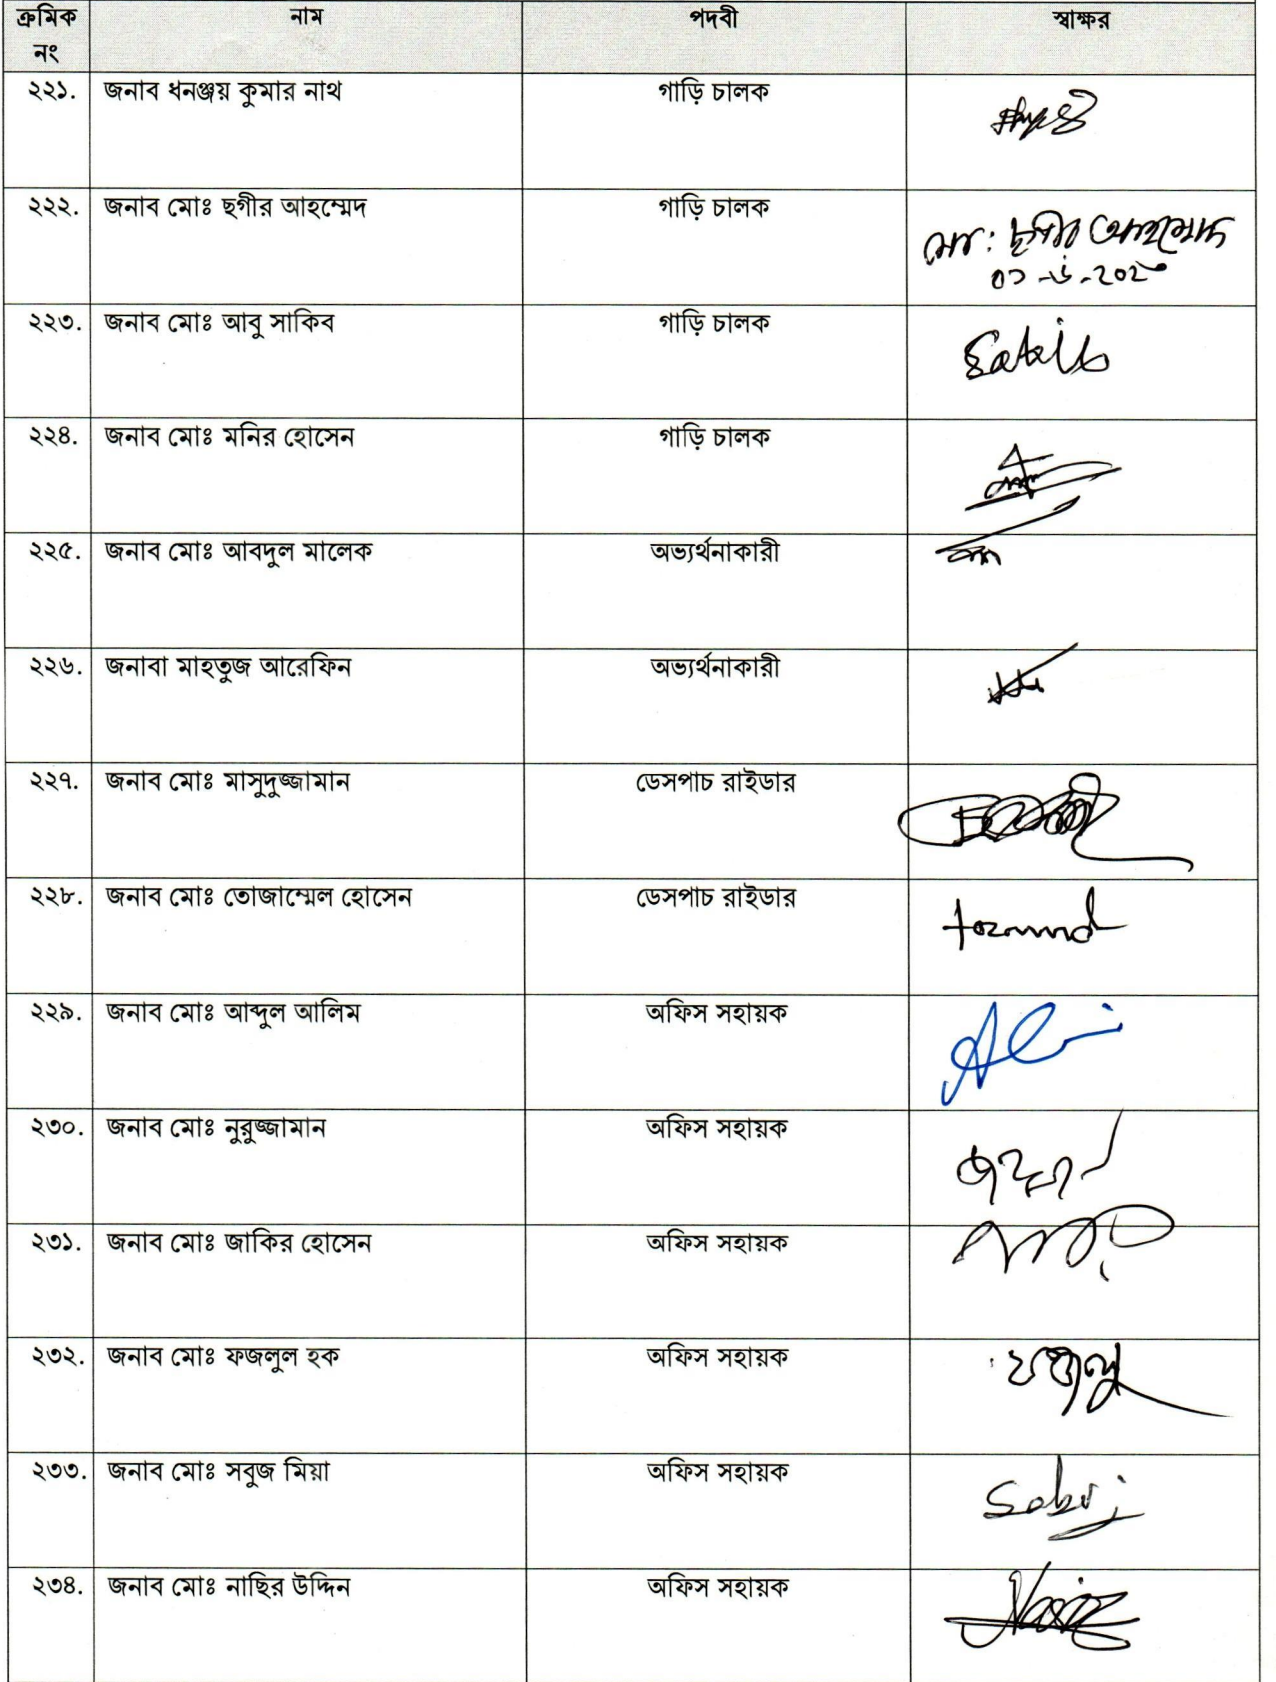 ক্রমিক নাম পদবী স্বাক্ষর
নং
২২১. জনাব ধনঞ্জয় কুমার নাথ গাড়ি চালক
২২২. জনাব মোঃ ছগীর আহম্মেদ গাড়ি চালক
মোঃ ছগীর আহম্মেদ
২২৩. জনাব মোঃ আবু সাকিব গাড়ি চালক Sakib
২২৪. জনাব মোঃ মনির হোসেন গাড়ি চালক
২২৫. জনাব মোঃ আবদুল মালেক অভ্যর্থনাকারী
২২৬. জনাবা মাহতুজ আরেফিন অভ্যর্থনাকারী
২২৭. জনাব মোঃ মাসুদুজ্জামান ডেসপাচ রাইডার
২২৮. জনাব মোঃ তোজাম্মেল হোসেন ডেসপাচ রাইডার
২২৯. জনাব মোঃ আব্দুল আলিম অফিস সহায়ক
২৩০. জনাব মোঃ নুরুজ্জামান অফিস সহায়ক
২৩১. জনাব মোঃ জাকির হোসেন অফিস সহায়ক
২৩২. জনাব মোঃ ফজলুল হক অফিস সহায়ক
২৩৩. জনাব মোঃ সবুজ মিয়া অফিস সহায়ক Sobuj
২৩৪. জনাব মোঃ নাছির উদ্দিন অফিস সহায়ক